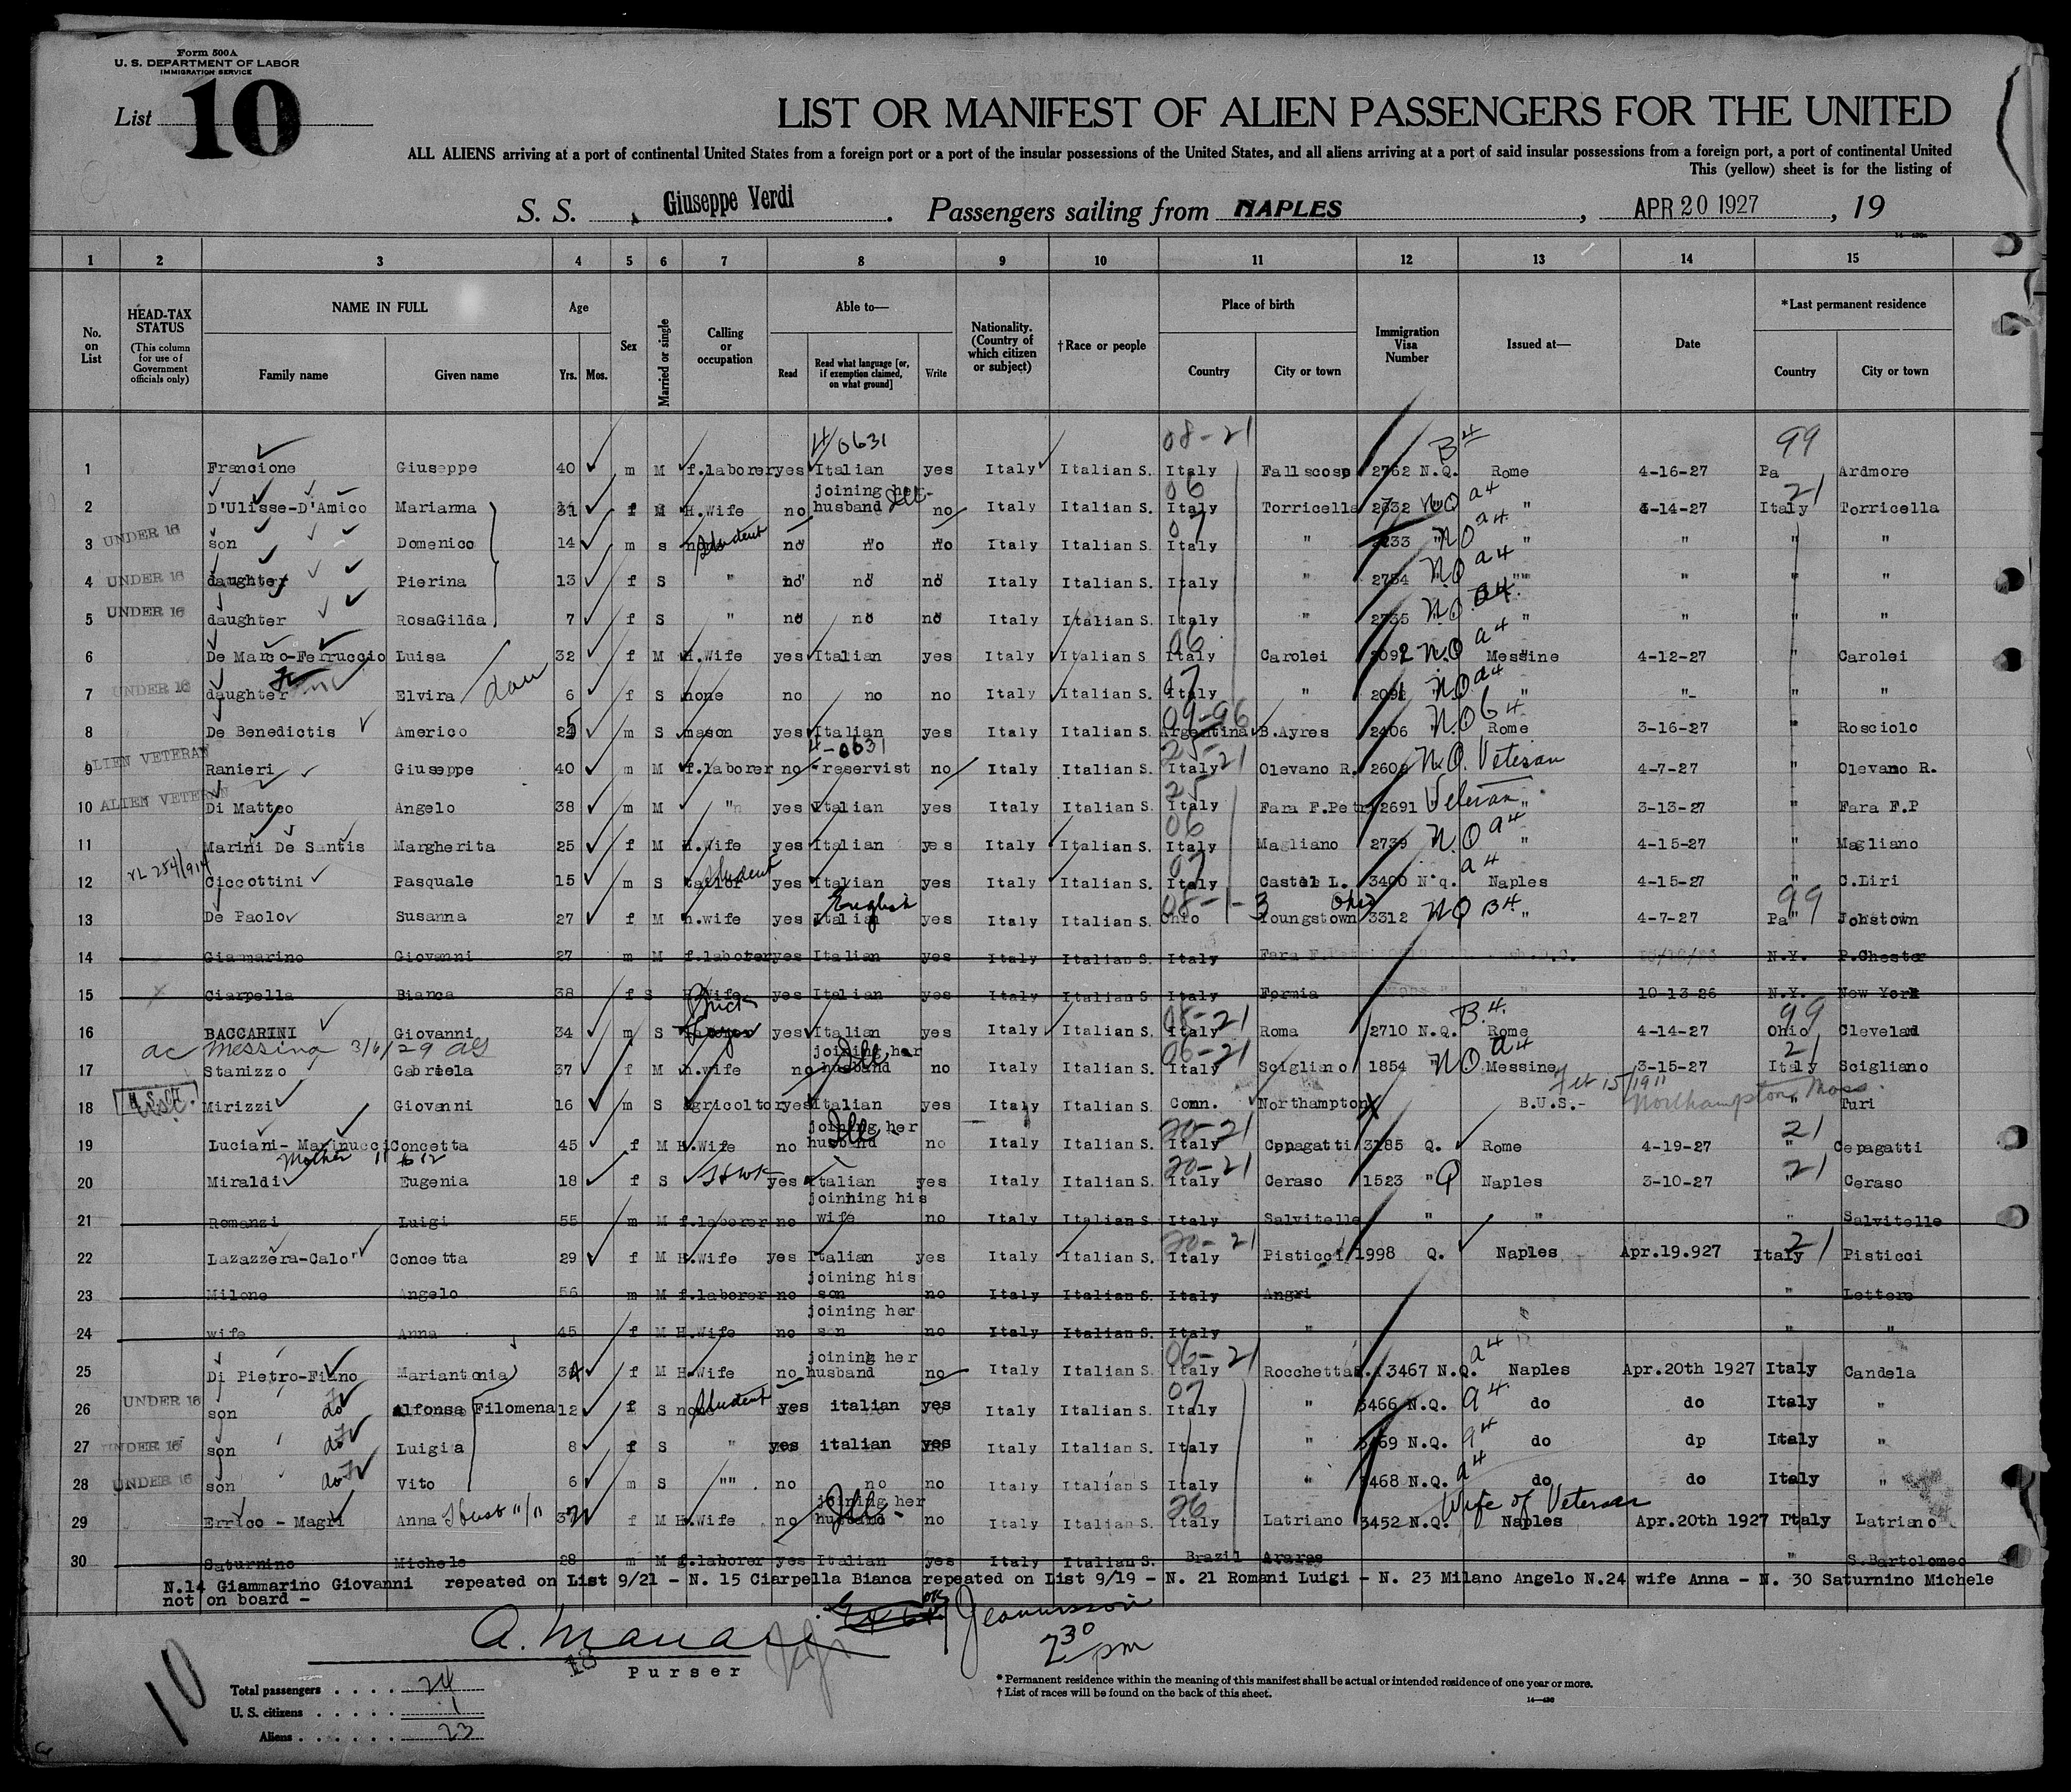 Form 500A
U. S. DEPARTMENT OF LABOR
IMMIGRATION SERVICE
List 10
LIST OR MANIFEST OF ALIEN PASSENGERS FOR THE UNITED
ALL ALIENS arriving at a port of continental United States from a foreign port or a port of the insular possessions of the United States, and all aliens arriving at a port of said insular possessions from a foreign port, a port of continental United
This (yellow) sheet is for the listing of
S. S. Giuseppe Verdi. Passengers sailing from NAPLES, APR 20 1927, 19
1 2 3 4 5 6 7 8 9 10 11 12 13 14 15
No. on List
HEAD-TAX STATUS (This column for use of Government officials only)
NAME IN FULL Family name Given name
Age Yrs. Mos.
Sex
Married or single
Calling or occupation
Able to— Read Read what language [or, if exemption claimed, on what ground] Write
Nationality. (Country of which citizen or subject)
†Race or people
Place of birth Country City or town
Immigration Visa Number
Issued at—
Date
*Last permanent residence Country City or town
4/0631 08-21 B4 99
1 Francione Giuseppe 40 m M f.laborer yes Italian yes Italy Italian S. Italy Fallscoso 2762 N.Q. Rome 4-16-27 Pa Ardmore
joining her 06 21
2 D'Ulisse-D'Amico Marianna 31 f M H.Wife no husband no Italy Italian S. Italy Torricella 2732 NQ a4 " 4-14-27 Italy Torricella
3 UNDER 16 son Domenico 14 m s student no no no Italy Italian S. Italy " NQ a4 " " " "
4 UNDER 16 daughter Pierina 13 f S " no no no Italy Italian S. Italy " 2734 NQ a4 " " " "
5 UNDER 16 daughter RosaGilda 7 f S " no no no Italy Italian S. Italy " 2735 NQ a4 " " " "
6 De Marco-Ferruccio Luisa 32 f M H.Wife yes Italian yes Italy Italian S Italy Carolei 2092 N.Q a4 Messine 4-12-27 " Carolei
7 UNDER 16 daughter Elvira dau 6 f S none no no no Italy Italian S. Italy " NQ a4 " " " "
8 De Benedictis Americo 25 m S mason yes Italian yes Italy Italian S. Argentina B.Ayres 2406 N.Q b4 Rome 3-16-27 " Rosciolo
4-0631
9 ALIEN VETERAN Ranieri Giuseppe 40 m M f.laborer no reservist no Italy Italian S. Italy 21 Olevano R. N.Q. Veteran 4-7-27 " Olevano R.
10 ALIEN VETERAN Di Matteo Angelo 38 m M " yes Italian yes Italy Italian S. Italy Fara F.Petr 2691 Veteran " 3-13-27 " Fara F.P
11 Marini De Santis Margherita 25 f M H.Wife yes Italian yes Italy Italian S. Italy Magliano 2739 N.Q a4 " 4-15-27 " Magliano
12 Ciccottini Pasquale 15 m S tailor student yes Italian yes Italy Italian S. Italy Castle L. 3400 N.q. a4 Naples 4-15-27 " C.Liri
English 08-1-3 Ohio 99
13 De Paolo Susanna 27 f M h.wife yes Italian yes Italy Italian S. Ohio Youngstown 3312 NQ B4 " 4-7-27 Pa" Johstown
14 Giammarino Giovanni 27 m M f.laborer yes Italian yes Italy Italian S. Italy Fara F.Petr N.Y. P.Chester
15 Ciarpella Bianca 38 f S H.Wife yes Italian yes Italy Italian S. Italy Formia " 10-13-26 N.Y. New York
Brick 08-21 B.4. 99
16 BACCARINI Giovanni 34 m S yes Italian yes Italy Italian S. Italy Roma 2710 N.Q. Rome 4-14-27 Ohio Clevelad
ac Messina 3/6/29 joining her 06-21 a4 21
17 Stanizzo Gabriela 37 f M h.wife no husband no Italy Italian S. Italy Scigliano 1854 NQ Messine 3-15-27 Italy Scigliano
Feb 15/1911 Northampton Mass.
18 Mirizzi Giovanni 16 m S agricoltor yes Italian yes Italy Italian S. Conn. Northampton B.U.S.- " Turi
joining her 20-21 21
19 Luciani-Marinucci Concetta 45 f M H.Wife no husband no Italy Italian S. Italy Cepagatti 3185 Q. Rome 4-19-27 " Cepagatti
Mother 11 to 12 20-21 21
20 Miraldi Eugenia 18 f S yes Italian yes Italy Italian S. Italy Ceraso 1523 "Q Naples 3-10-27 " Ceraso
joinning his
21 Romanzi Luigi 55 m M f.laborer no wife no Italy Italian S. Italy Salvitelle " " " Salvitelle
20-21 21
22 Lazazzera-Calo' Concetta 29 f M H.Wife yes Italian yes Italy Italian S. Italy Pisticci 1998 Q. Naples Apr.19.927 Italy Pisticci
joining his
23 Milone Angelo 56 m M f.laborer no son no Italy Italian S. Italy Angri " Lettere
joining her
24 wife Anna 45 f M H.Wife no son no Italy Italian S. Italy " " "
joining her 06-21 a4
25 Di Pietro-Fiano Mariantonia 34 f M H.Wife no husband no Italy Italian S. Italy Rocchetta 3467 N.Q. Naples Apr.20th 1927 Italy Candela
26 UNDER 16 son do Alfonsa Filomena 12 f S none student yes italian yes Italy Italian S. Italy " 3466 N.Q. a4 do do Italy "
27 UNDER 16 son do Luigia 8 f S " yes italian yes Italy Italian S. Italy " 3469 N.Q. a4 do dp Italy "
28 UNDER 16 son do Vito 6 m S "" no no no Italy Italian S Italy " 3468 N.Q. a4 do do Italy "
joining her 26 Wife of Veteran
29 Errico - Magri Anna 37 f M H.Wife no husband no Italy Italian S. Italy Latriano 3452 N.Q. Naples Apr.20th 1927 Italy Latriano
30 Saturnino Michele 28 m M f.laborer yes Italian yes Italy Italian S. Brazil Araras " S.Bartolomeo
N.14 Giammarino Giovanni repeated on List 9/21 - N. 15 Ciarpella Bianca repeated on List 9/19 - N. 21 Romani Luigi - N. 23 Milano Angelo N.24 wife Anna - N. 30 Saturnino Michele
not on board -
2 30 pm
Purser
10
Total passengers . . . . 24
U. S. citizens . . . . . 1
Aliens . . . . . . 23
*Permanent residence within the meaning of this manifest shall be actual or intended residence of one year or more.
†List of races will be found on the back of this sheet.
14—430